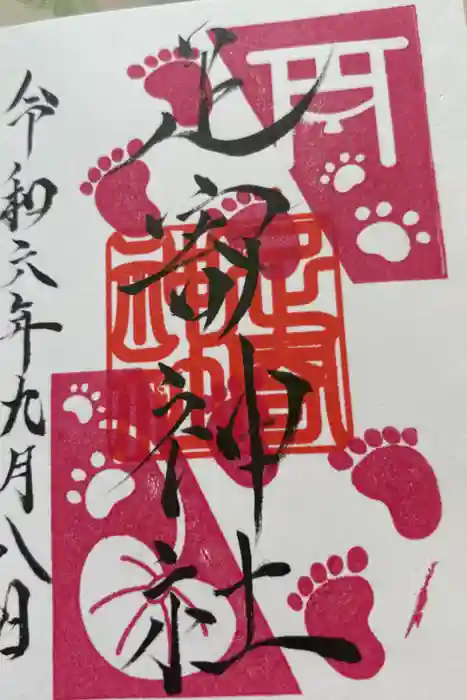 足寄神社
令和六年九月八日